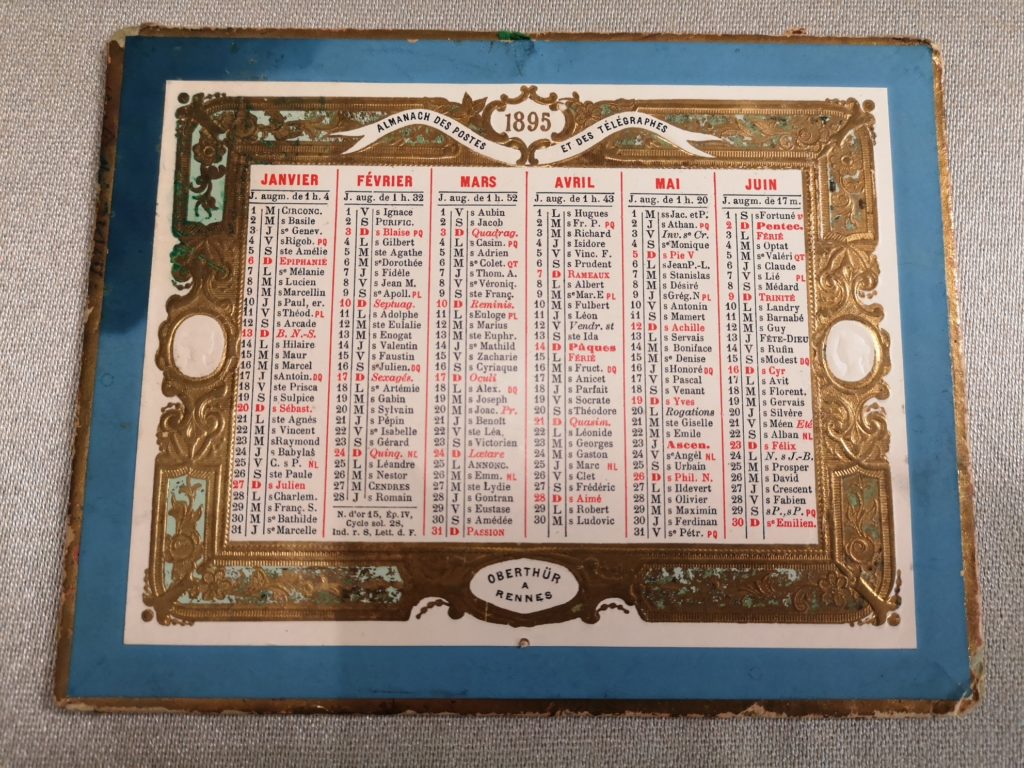 ALMANACH DES POSTES
1895
ET DES TÉLÉGRAPHES
JANVIER
J. augm. de 1 h. 4
1 M CIRCONC.
2 M s Basile
3 J se Genev.
4 V s Rigob. PQ
5 S ste Amélie
6 D EPIPHANIE
7 L s Mélanie
8 M s Lucien
9 M s Marcellin
10 J s Paul, er.
11 V s Théod. PL
12 S s Arcade
13 D B. N.-S.
14 L s Hilaire
15 M s Maur
16 M s Marcel
17 J s Antoin. DQ
18 V ste Prisca
19 S s Sulpice
20 D s Sébast.
21 L ste Agnès
22 M s Vincent
23 M s Raymond
24 J s Babylas
25 V C. s P. NL
26 S ste Paule
27 D s Julien
28 L s Charlem.
29 M s Franç. S.
30 M se Bathilde
31 J se Marcelle
FÉVRIER
J. aug. de 1 h. 32
1 V s Ignace
2 S PURIFIC.
3 D s Blaise PQ
4 L s Gilbert
5 M ste Agathe
6 M se Dorothée
7 J s Fidèle
8 V s Jean M.
9 S se Apoll. PL
10 D Septuag.
11 L s Adolphe
12 M ste Eulalie
13 M s Enogat
14 J s Valentin
15 V s Faustin
16 S se Julien. DQ
17 D Sexagés.
18 L se Artémie
19 M s Gabin
20 M s Sylvain
21 J s Pépin
22 V se Isabelle
23 S s Gérard
24 D Quinq. NL
25 L s Léandre
26 M s Nestor
27 M CENDRES
28 J s Romain
N. d'or 15, Ép. IV,
Cycle sol. 28,
Ind. r. 8, Lett. d. F.
MARS
J. aug. de 1 h. 52
1 V s Aubin
2 S s Jacob
3 D Quadrag.
4 L s Casim. PQ
5 M s Adrien
6 M se Colet. QT
7 J s Thom. A.
8 V se Véroniq.
9 S ste Franç.
10 D Reminis.
11 L s Euloge PL
12 M s Marius
13 M ste Euphr.
14 J se Mathild
15 V s Zacharie
16 S s Cyriaque
17 D Oculi
18 L s Alex. DQ
19 M s Joseph
20 M s Joac. Pr.
21 J s Benoît
22 V ste Léa.
23 S s Victorien
24 D Lætare
25 L ANNONC.
26 M s Emm. NL
27 M ste Lydie
28 J s Gontran
29 V s Eustase
30 S s Amédée
31 D PASSION
AVRIL
J. aug. de 1 h. 43
1 L s Hugues
2 M s Fr. P. PQ
3 M s Richard
4 J s Isidore
5 V s Vinc. F.
6 S s Prudent
7 D RAMEAUX
8 L s Albert
9 M se Mar. E PL
10 M s Fulbert
11 J s Léon
12 V Vendr. st
13 S ste Ida
14 D Pâques
15 L FÉRIÉ
16 M s Fruct. DQ
17 M s Anicet
18 J s Parfait
19 V s Socrate
20 S s Théodore
21 D Quasim.
22 L s Léonide
23 M s Georges
24 M s Gaston
25 J s Marc NL
26 V s Clet
27 S s Frédéric
28 D s Aimé
29 L s Robert
30 M s Ludovic
MAI
J. aug. de 1 h. 20
1 M ss Jac. et P.
2 J s Athan. PQ
3 V Inv. se Cr.
4 S se Monique
5 D s Pie V
6 L s Jean P.-L.
7 M s Stanislas
8 M s Désiré
9 J s Grég. N PL
10 V s Antonin
11 S s Mamert
12 D s Achille
13 L s Servais
14 M s Boniface
15 M se Denise
16 J s Honoré DQ
17 V s Pascal
18 S s Venant
19 D s Yves
20 L Rogations
21 M ste Giselle
22 M s Emile
23 J Ascen.
24 V se Angèl NL
25 S s Urbain
26 D s Phil. N.
27 L s Ildevert
28 M s Olivier
29 M s Maximin
30 J s Ferdinan
31 V se Pétr. PQ
JUIN
J. augm. de 17 m.
1 S s Fortuné v
2 D Pentec.
3 L FÉRIÉ
4 M s Optat
5 M se Valéri QT
6 J s Claude
7 V s Lié PL
8 S s Médard
9 D TRINITÉ
10 L s Landry
11 M s Barnabé
12 M s Guy
13 J FÊTE-DIEU
14 V s Rufin
15 S s Modest DQ
16 D s Cyr
17 L s Avit
18 M s Florent.
19 M s Gervais
20 J s Silvère
21 V s Méen Eté
22 S s Alban NL
23 D s Félix
24 L N. s J.-B.
25 M s Prosper
26 M s David
27 J s Crescent
28 V s Fabien
29 S s P., s P. PQ
30 D se Emilien.
OBERTHÜR
A
RENNES